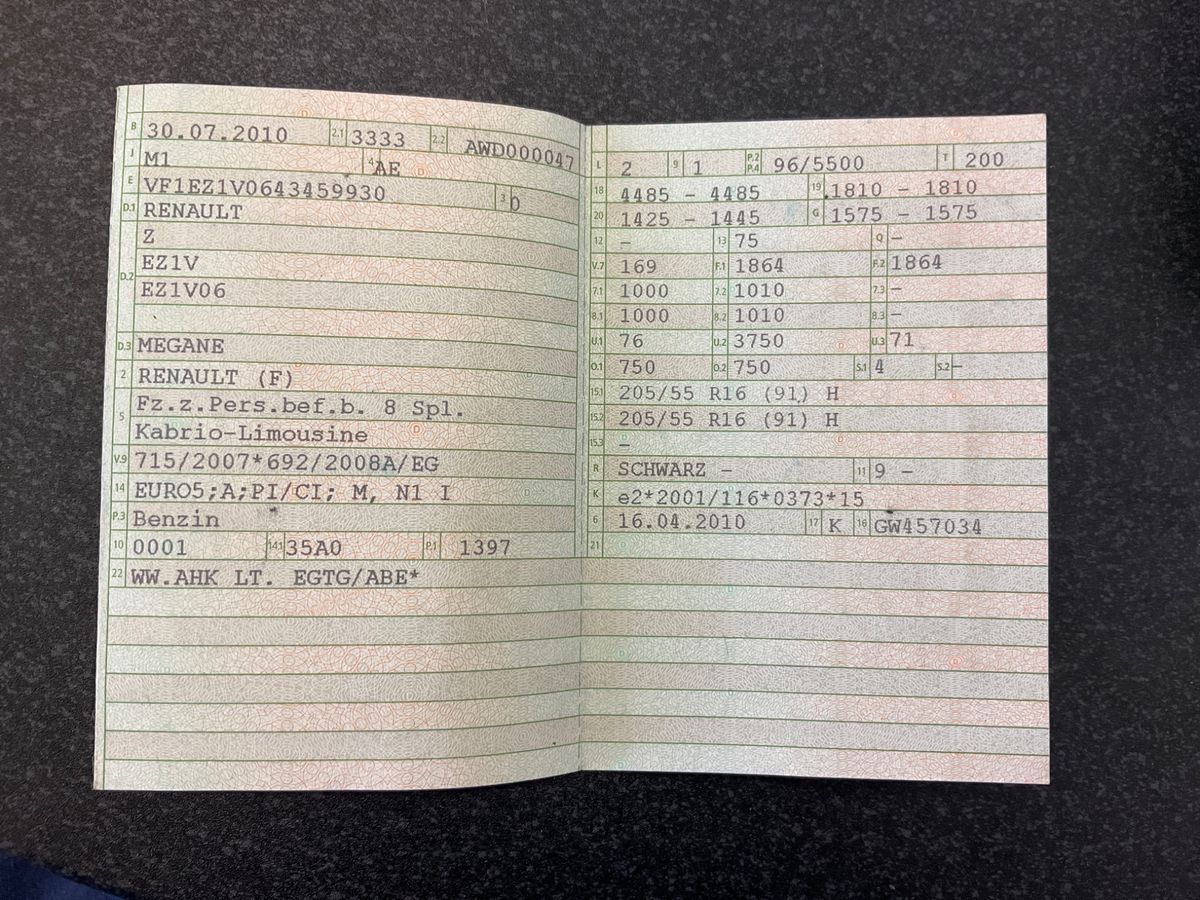 B 30.07.2010 2.1 3333 2.2 AWD000047
J M1 4 AE
E VF1EZ1V0643459930 3 b
D.1 RENAULT
D.2 Z
EZ1V
EZ1V06
D.3 MEGANE
2 RENAULT (F)
5 Fz.z.Pers.bef.b. 8 Spl.
Kabrio-Limousine
V.9 715/2007*692/2008A/EG
14 EURO5;A;PI/CI; M, N1 I
P.3 Benzin
10 0001 14.1 35A0 P.1 1397
22 WW.AHK LT. EGTG/ABE*
L 2 9 1 P.2 P.4 96/5500 T 200
18 4485 - 4485 19 1810 - 1810
20 1425 - 1445 G 1575 - 1575
12 - 13 75 Q -
V.7 169 F.1 1864 F.2 1864
7.1 1000 7.2 1010 7.3 -
8.1 1000 8.2 1010 8.3 -
U.1 76 U.2 3750 U.3 71
O.1 750 O.2 750 S.1 4 S.2 -
15.1 205/55 R16 (91) H
15.2 205/55 R16 (91) H
15.3 -
R SCHWARZ - 11 9 -
K e2*2001/116*0373*15
6 16.04.2010 17 K 16 GW457034
21